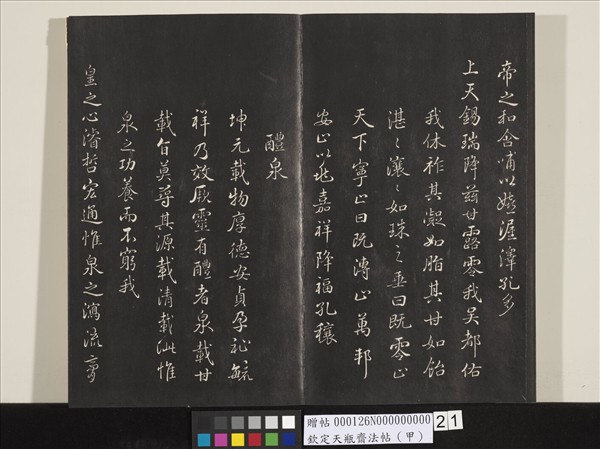 帝之和含哺以嬉渥澤孔多
上天錫瑞降茲甘露零我吴都佑
我休祚其凝如脂其甘如飴
湛〻瀼〻如珠之垂曰既零止
天下寧止曰既漙止萬邦
安止以兆嘉祥降福孔穰
醴泉
坤元載物厚德安貞孕祉毓
祥乃效厥靈有醴者泉載甘
載旨莫尋其源載清載泚惟
泉之功養而不窮我
皇之心濬哲宏通惟泉之瀉流亭
贈帖 000126N000000000 21
欽定天瓶齋法帖（甲）